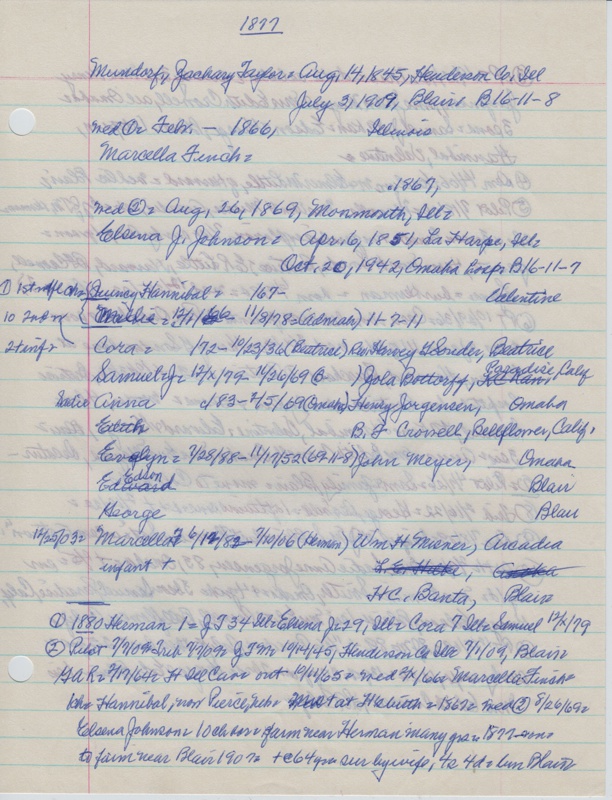 1877
Mundorf, Zachary Taylor = Aug, 14, 1845, Henderson Co, Ill
July 3, 1909, Blair B16-11-8
med ① = Febr. — 1866, Illinois
Marcella Finch =
1867,
med ② = Aug, 26, 1869, Monmonth, Ill =
Elsena J, Johnson = Apr, 6, 1851, La Harpe, Ill =
Oct. 20, 1942, Omaha B16-11-7
① 1st Quincy Hannibal = /67- Valentine
10 2nd Millie = 11/3/78 = (admah) 11-7-11
2 + inf = Cora = /72 - 10/23/36 (Beatrice) Rev Harvey G Souder, Beatrice
Samuel J = 12/x/79 - 11/26/69 @ ) Zola Bottorff, Paradise, Calif
Anna /83 - 2/5/69 (Omaha) Henry Jorgensen, Omaha
Edith B. F Crowell, Bellflower, Calif,
Evalyn = 7/28/88 - 11/17/52 (69-11-8) John Meyer, Omaha
Edward Edson Blair
George Blair
12/25/03 = Marcella = 6/12/82 - 7/10/06 (Herman) Wm H. Misner, Arcadia
infant +
H C. Banta, Blair
① 1880 Herman 1 = Z T 34 Ill = Elsena J = 29, Ill = Cora 7 Ill = Samuel 12/x/79
② Pilot 7/7/09 = Trib 7/7/09 = Z T M 10/14/45, Henderson Co Ill 7/1/09, Blair =
G a R = 2/17/64 = H Ill Cav = out 10/11/65 = med 2/x/66 = Marcella Finch =
1ch = Hannibal, now Pierce, Neb = + at H's birth = 1867 = med ② 8/26/69 =
Elsena Johnson = 10 ch = farm near Herman many yrs = 1877
to farm near Blair 1907 = + @ 64 yrs = sur by wife, 4s 4d = bur Blair